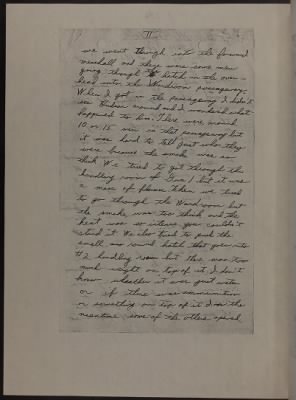 11
we went through into the forward
messhall and there were some men
going though a hatch in the over-
head into the Wardroom passageway.
When I got in the passageway I didn't
see around and I wondered what
happened to him. There were around
10 or 15 men in that passageway but
it was hard to tell just who they
were because the smoke was so
thick. We tried to get through the
handling room of Gun 1 but it was
a mass of flames. Then we tried
to go through the Wardroom but
the smoke was too thick and the
heat was so intense you couldn't
stand it. We also tried to push the
small round hatch that goes into
#2 handling room but there was too
much weight on top of it. I don't
know whether it was just water
or if there was ammunition
or something on top of it. In the
meantime some of the others opened